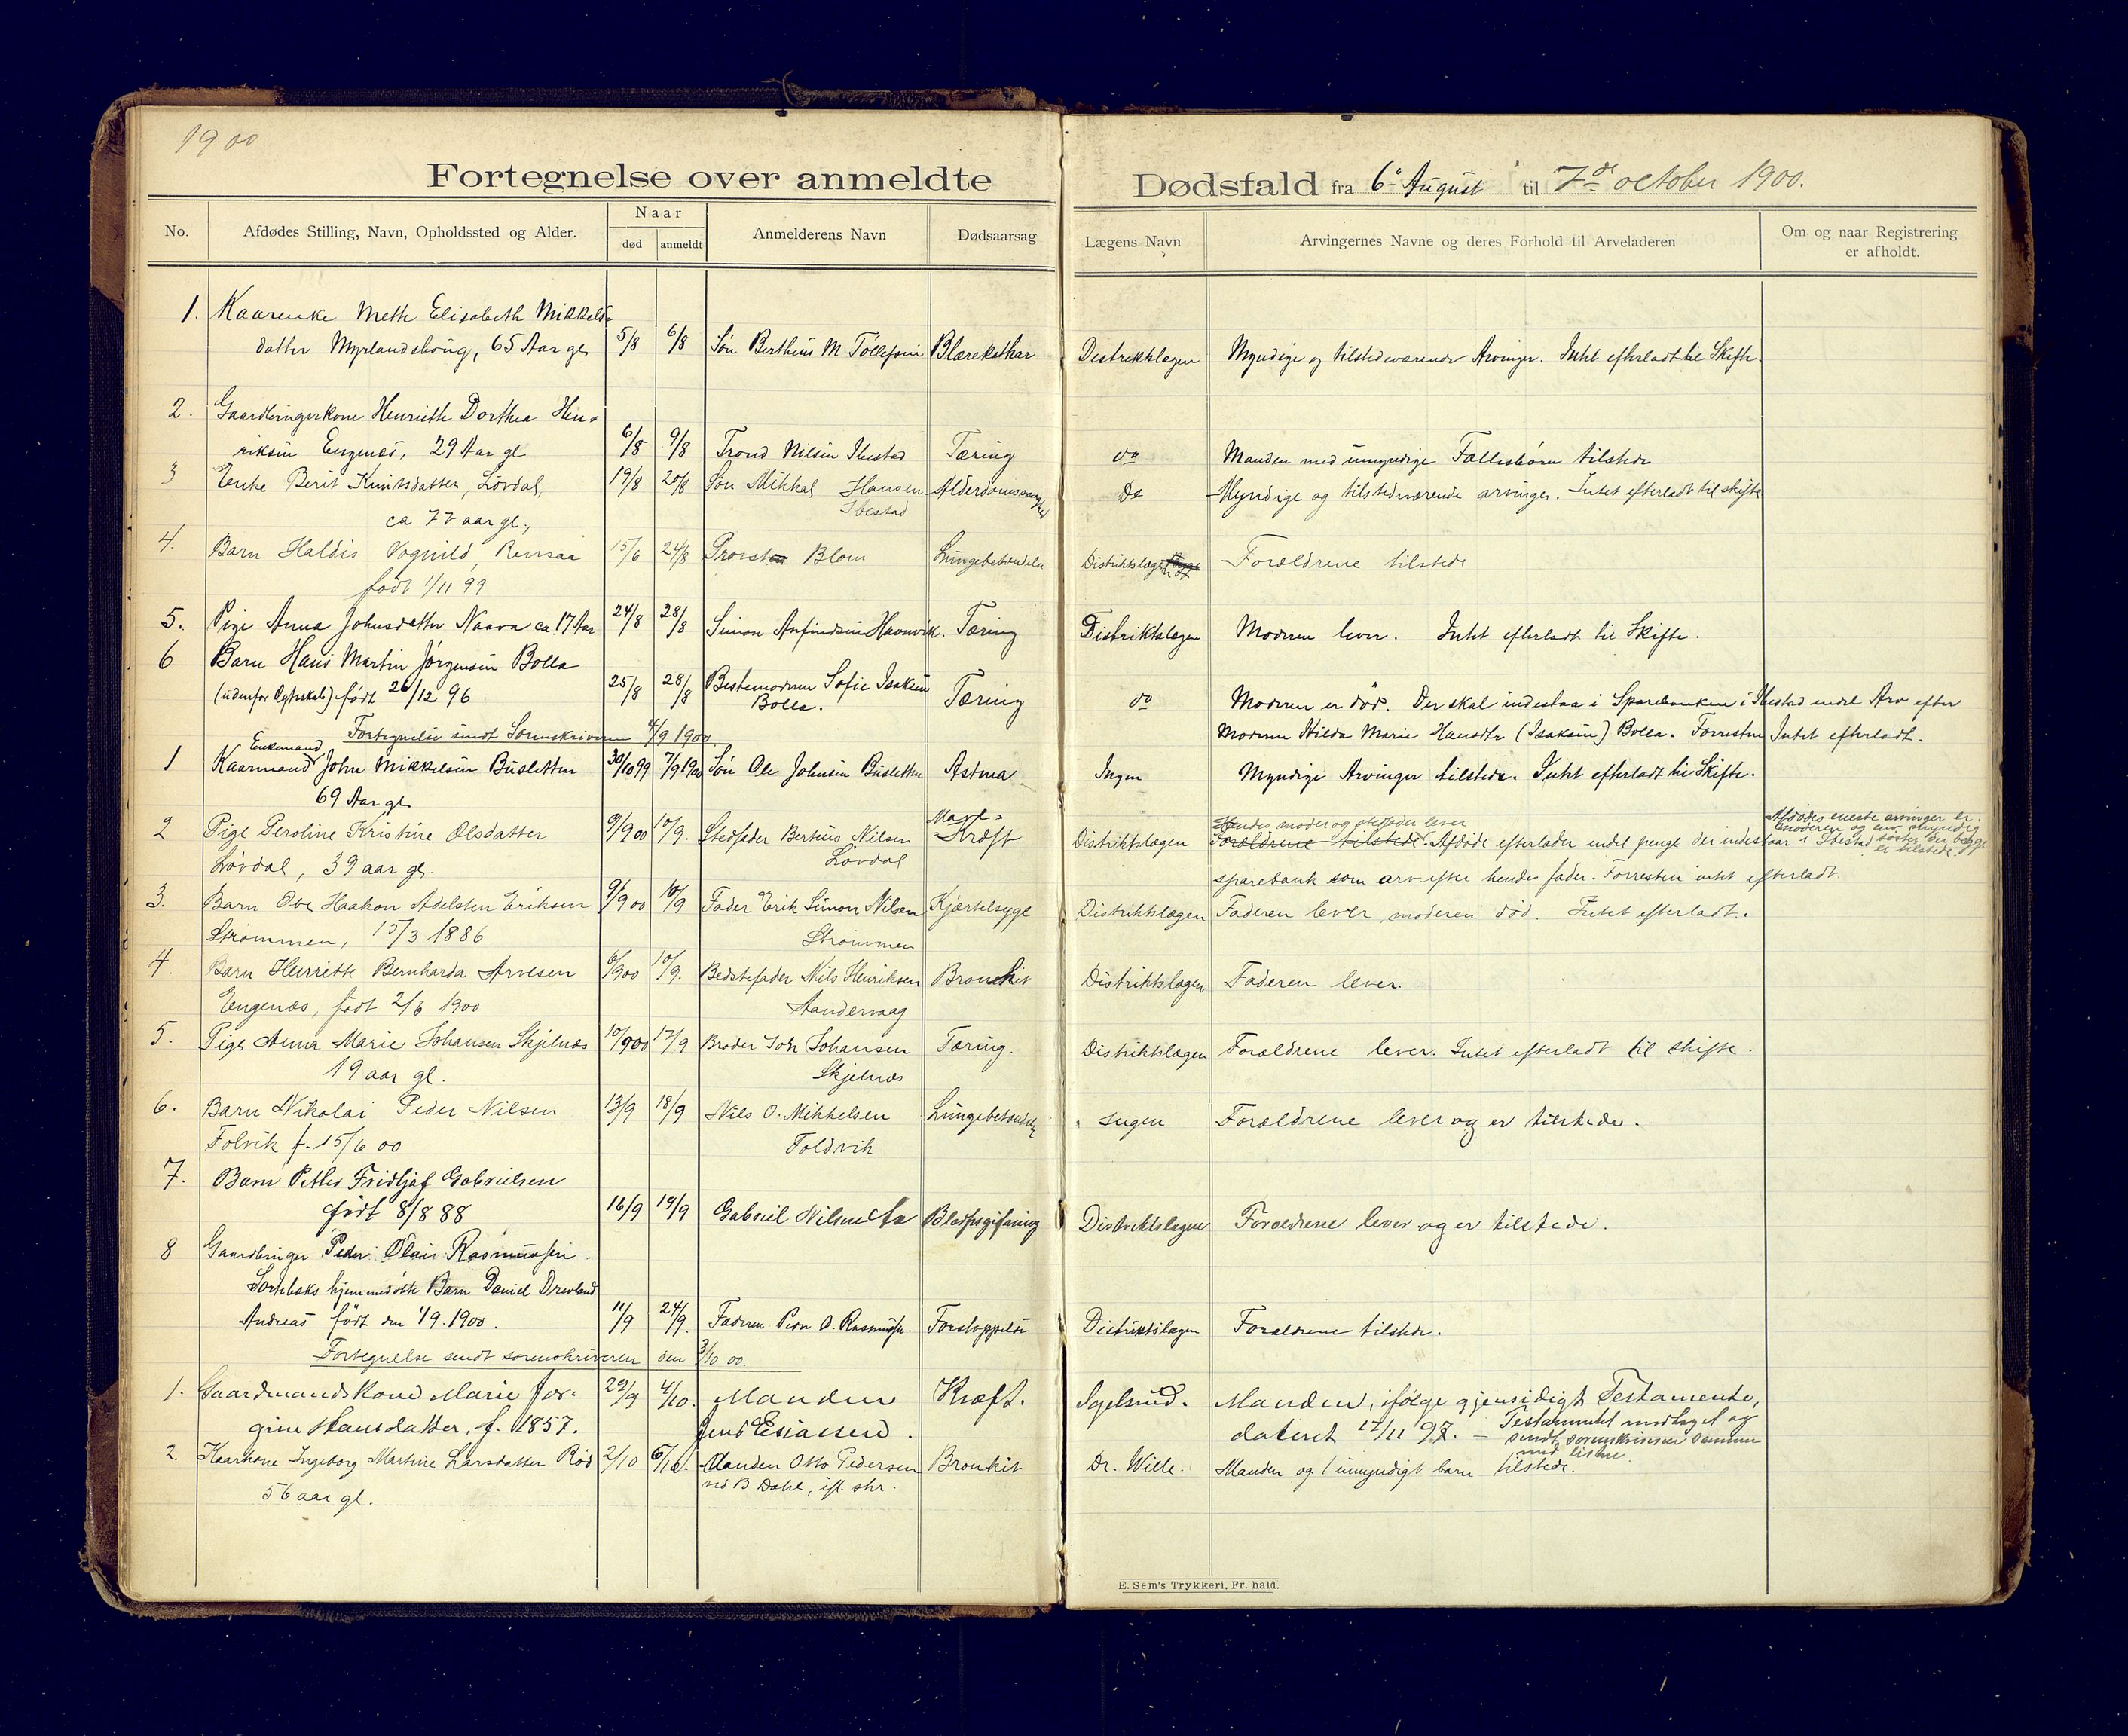 1900
Fortegnelse over anmeldte
Dødsfald fra 6e August til 7de october 1900.
No.
Afdødes Stilling, Navn, Opholdssted og Alder.
Naar
død
anmeldt
Anmelderens Navn
Dødsaarsag
Lægens Navn
Arvingernes Navne og deres Forhold til Arveladeren
Om og naar Registrering
er afholdt.
1. Kaarenke Meth Elisabeth Mikkels-
datter Myrlandshoug, 65 Aar gl. 5/8 6/8 Søn Bertheus M Tollefsen Blærekathar Distriktslægen Myndige og tilstedeværende Arvinger. Intet efterladt til Skifte.
2. Gaardbrugerkone Henrieth Dorthea Hen-
riksen Engenæs, 29 Aar gl 6/8 9/8 Trond Nilsen Ibestad Tæring do Manden med umyndige Fællesbørn tilstede
3 Enke Berit Knutsdatter, Løvdal, 19/8 20/8 Søn Mikkal Hansen Alderdomssvaghed Do Myndige og tilstedeværende arvinger. Intet efterladt til skifte
ca 77 aar gl., Ibestad
4. Barn Haldis Vognild, Rensaa 15/6 24/8 Provst Blom Lungebetændelse Distriktslæge Foreldrene tilstede
født 1/11 99
5. Pige Anna Johnsdatter Naava ca. 17 Aar 24/8 28/8 Simon Anfindsen Havnvik. Tæring Distriktslægen Moderen lever. Intet efterladt til Skifte.
6 Barn Hans Martin Jørgensen Bolla
(udenfor Ægteskab) født 26/12 96 25/8 28/8 Bestemoderen Sofie Isaksen Bolla. Tæring do Moderen er død. Der skal indestaa i Sparebanken i Ibestad endel Arv efter
Moderen Hilda Marie Hansdtr (Isaksen) Bolla. Forresten Intet efterladt.
Fortegnelse sendt Sorenskriveren 4/9 1900
Enkemand
1 Kaarmand John Mikkelsen Busletten 30/10 99 7/9 1900 Søn Ole Johnsen Busletten Astma Ingen Myndige Arvinger tilstede. Intet efterladt til Skifte.
69 Aar gl.
Hendes moder og stedfader lever
Afdødes eneste arvinger er
moderen og en myndig
søster der begge
er tilstede.
2 Pige Peroline Kristine Olsdatter 9/9 00 10/9. Stedfader Bertius Nilsen Mave-Kræft Distriktslægen Foreldrene tilstede. Afdøde efterlader endel penge der indestaar i Ibestad
Løvdal, 39 aar gl. Løvdal sparebank som arv efter hendes fader. Forresten intet efterladt.
3. Barn Ove Haakon Adelsten Eriksen 9/9 00 10/9 Fader Erik Simon Nilsen Kjertelsyge Distriktslægen Faderen lever, moderen død. Intet efterladt.
Strømmen, 15/3 1886 Strømmen
4. Barn Henriette Bernharda Arvesen 6/9 00 10/9. Bedstefader Nils Henriksen Bronkit Distriktslægen Faderen lever.
Engenæs, født 2/6 1900 Aandervaag
5. Pige Anna Marie Johansen Skjelnæs 10/9 00 17/9 Broder Joh Johansen Tæring. Distriktslægen Foreldrene lever. Intet efterladt til skifte.
19 aar gl. Skjelnæs
6. Barn Nikolai Peder Nilsen 13/9 18/9 Nils O. Mikkelsen Lungebetændelse Ingen Foreldrene lever og er tilstede.
Folvik f. 15/6 00 Foldvik
7. Barn Petter Fridtjof Gabrielsen
født 8/8 88 16/9 19/9 Gabriel Nilsen Blodforgiftning Distriktslægen Foreldrene lever og er tilstede.
8 Gaardbruger Peder Olai Rasmussen
hjemmedøbte Barn Daniel
Andreas født den 1/9. 1900. 11/9 24/9. Faderen Peder O. Rasmussen. Forstoppelse Distriktslægen Foreldrene tilstede.
Fortegnelse sendt sorenskriveren den 3/10 00.
1. Gaardmandskone Marie Jør- 29/9 4/10. Manden Kræft. Sgelsrud. Manden, ifølge gjensidigt Testamente,
gine Hansdatter, f. 1857. Jens Esiassen. dateret 17/11 97. – Testamentet modtaget og
sendt sorenskriveren sammen
med listen.
2. Kaarkone Ingeborg Martine Larsdatter Rød 2/10 6/10. Manden Otto Pedersen Bronkit Dr. Wille. Manden og 1 umyndigt barn tilstede.
56 aar gl. ved B Dahl, ifl. skr.
E. Sem's Trykkeri, Fr. hald.